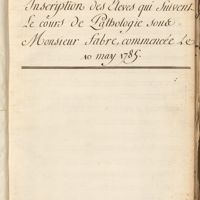 Inscription des Eleves qui Suivent
Le cours de Pathologie sous
Monsieur Fabre, commencée Le
10 may 1785.